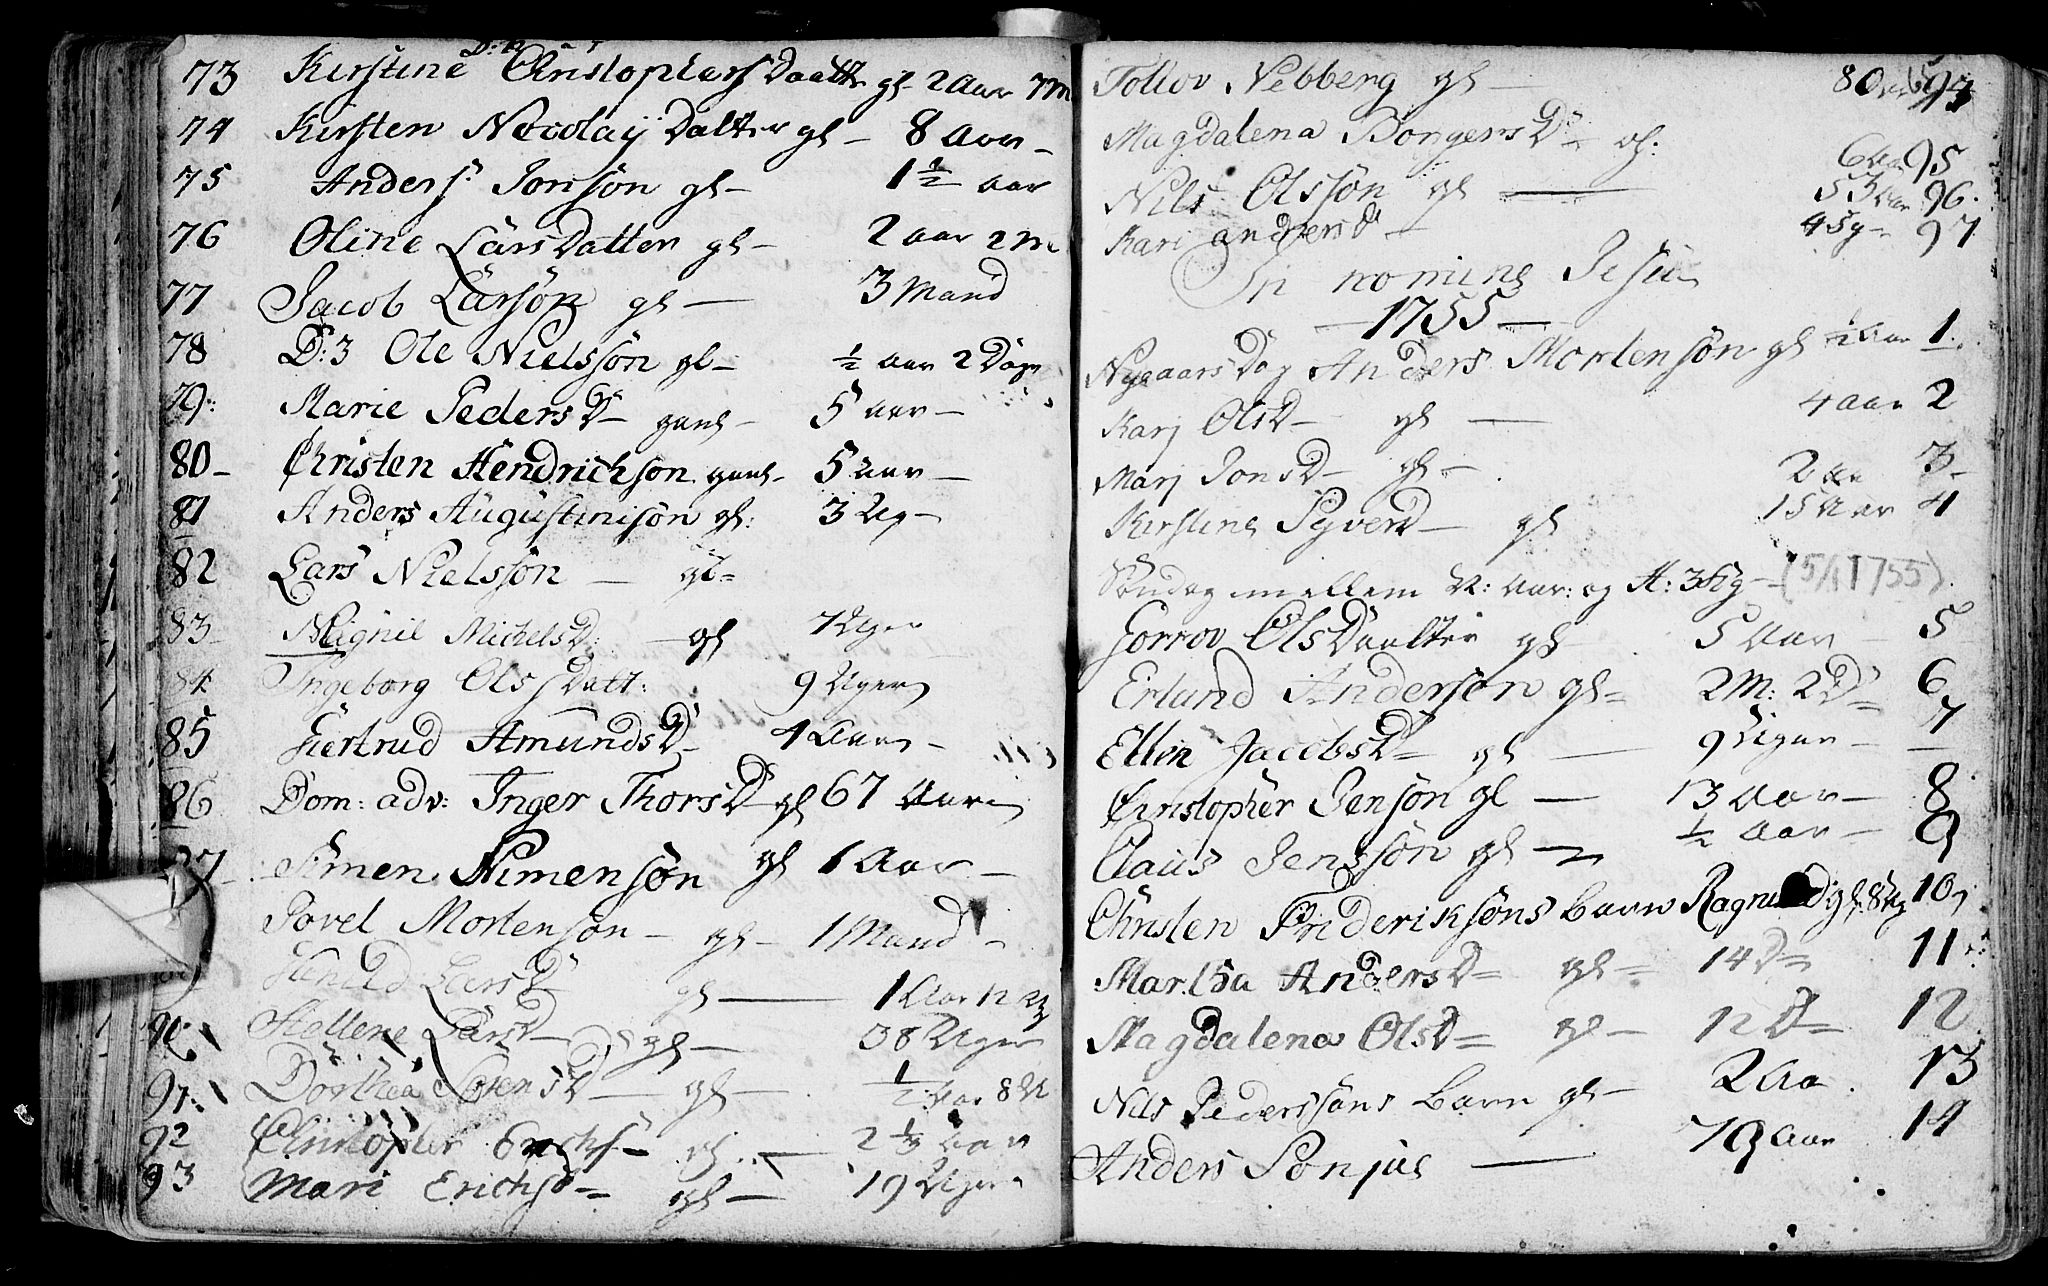 73 Kirstine Christophers Daatter gl- 2 Aar 7 M
74 Kirsten Nicolaij Datter gl- 8 Aar-
75 Anders Jonsøn gl- 1 1/2 aar
76 Oline Lars Datter gl- 2 aar 2 M
77 Jacob Larsøn gl- 3 Maand
78 D:3 Ole Nielssøn gl- 1/2 aar 2 Dage
79: Marie Peders D- gaml- 5 aar-
80- Christen Hendrichsøn gaml- 5 aar-
81 Anders Augustinisøn gl: 3 Ug-
82 Lars Nielssøn - gl-
83- Magnil Michels D: - gl 7 Uger
84 Ingeborg Olss Datt: 9 Uger
85 Giertrud Amunds D- 1 Aar-
86 Dom: adv: Inger Thors D gl 67 Aar
87- Simen Simensøn gl 1 Aar-
Povel Mortensøn- gl- 1 Maand-
Lars D gl- 1 Aar 12
90 Lars D- gl- 38 Uger
91: Dorthea Sørens D- gl- 1/2 Aar 8 U
92 Christopher Erichs- gl. - 2 1/2 aar
93 Mari Erichs D- gl- 19 Uger
Tollov Nebberg gl- 80 94
Magdalena Borgers D- gl: 6 95
Nils Olssøn gl- 53 Aar 96.
Kari anders D- 45 97
In nomine Jesu
-1755-
Nyeaars Dag Anders Mortensøn gl 1/2 Aar 1.
Karj Ols D- gl- 4 aar 2
Marj Jons D- gl- 2 Aa 3-
Kirstine Syver D- gl 15 Aar 4
Søndag mellem N: Aar: og H: 3 Kg- (5/1 1755)
Gorrov Ols Daatter gl- 5 Aar 5
Erland Andersøn gl- 2 M: 2 D- 6
Ellen Jacobs D- gl- 9 Uger- 7
Christopher Jensøn gl- 13 Aar- 8
Claus Jenssøn gl- 1/2 Aar- 9
Christen Frideriksøns barn gl. 8 Ug 10
Martha Anders D- gl- 14 D- 11
Magdalena Ols D- gl- 12 D- 12
Nils Pederssøns Barn gl- 2 Aa. 13
Anders - 79 Aar 14